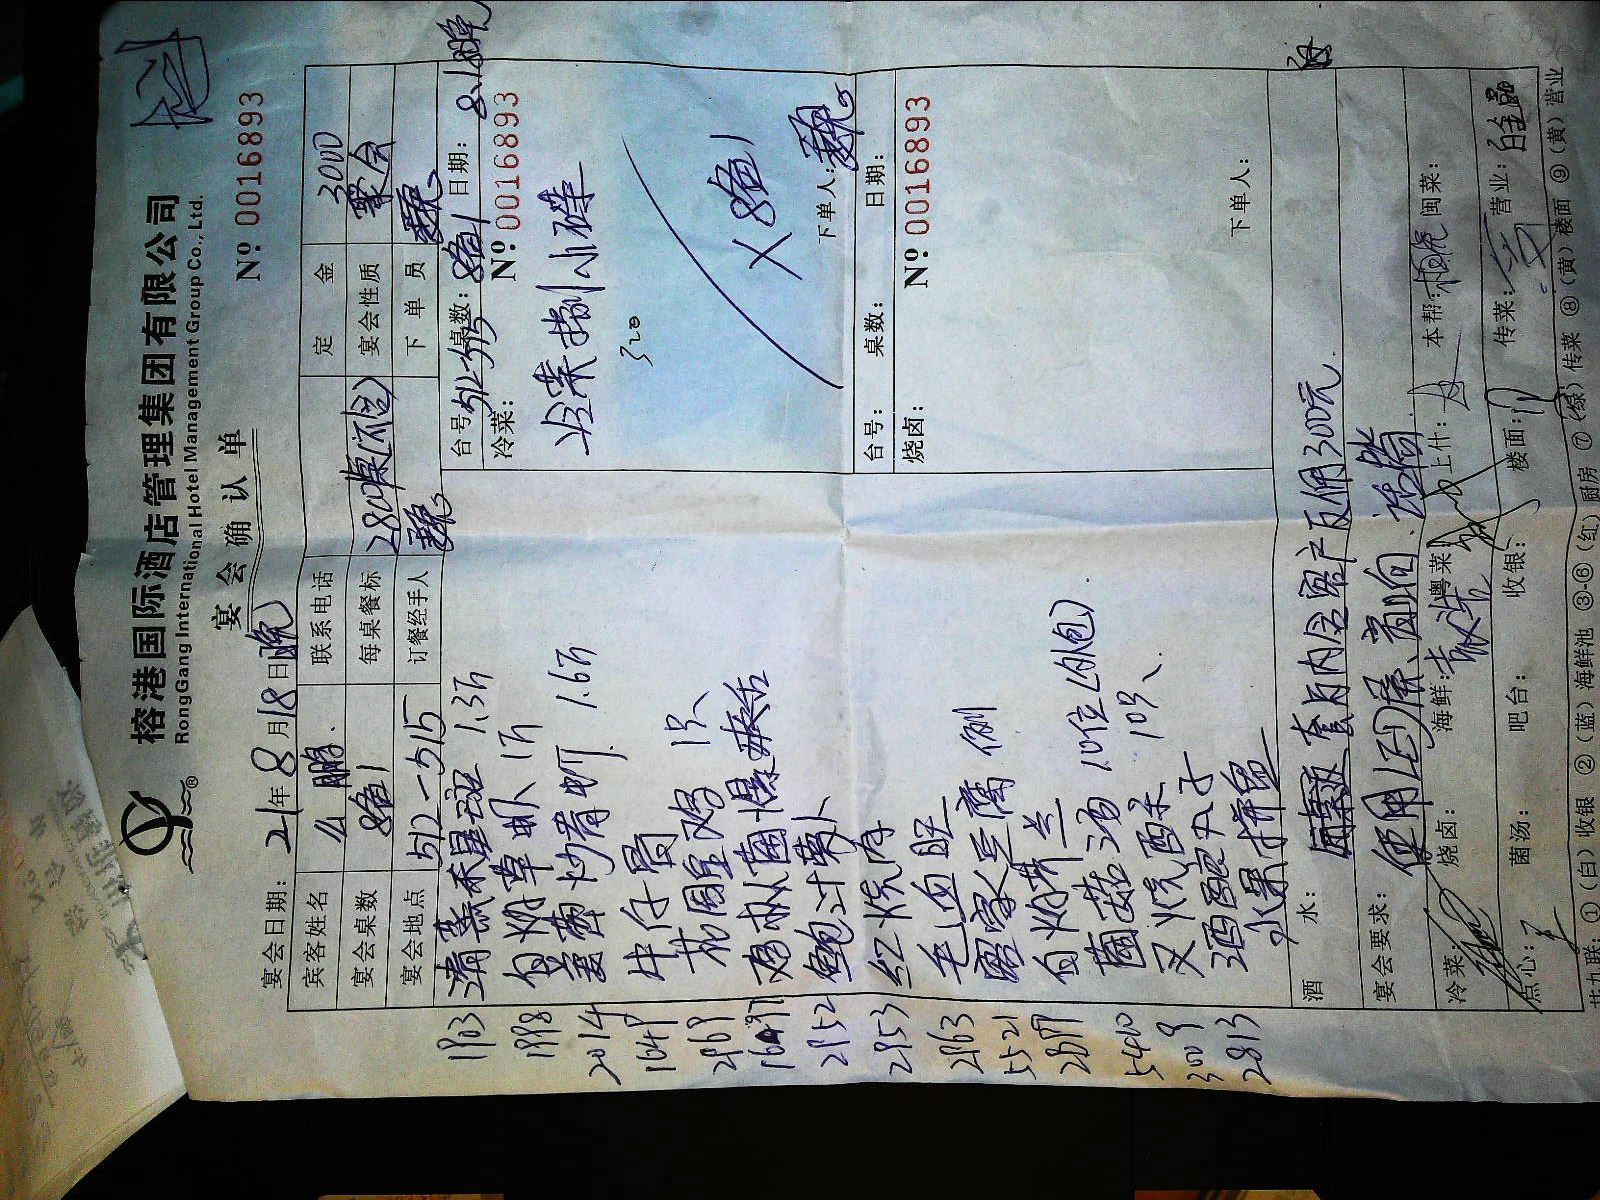 榕港国际酒店管理集团有限公司
RongGang International Hotel Management Group Co., Ltd.
®
宴会确认单
Nº 0016893
宴会日期: 21年8月18日晚
宾客姓名 么鹏 联系电话 定金 3000
宴会桌数 8备1 每桌餐标 280/桌(不含) 宴会性质 聚会
宴会地点 512-515 订餐经手人 下单员
1903 清蒸禾星斑 1.3斤
1998 白灼草虾 1斤
2014 姜葱炒青虾 1.6斤
1049 牛仔骨
2969 花雕鸡 1只
鸡枞菌爆
2952 鲍汁萝卜
2953 红烧肉
2963 毛血旺
5521 家豆腐 例
2897 白灼芥兰
5410 菌菇汤 10位(外包)
3009 叉烧酥 10只
酒酿丸子
2813 水果拼盘
台号: 512-515 桌数: 8备1 日期: 8.18晚
冷菜: Nº 0016893
冷菜捌小碟
320
X 8备1
下单人:
台号: 桌数: 日期:
烧卤: Nº 0016893
下单人:
酒水: 套房内含客户反佣300元
宴会要求: 使用LED屏、音响、话筒.
冷菜: 烧卤: 海鲜: 粤菜: 上什: 本帮: 闽菜:
点心: 菌汤: 吧台: 收银: 楼面: 传菜: 营业:
共九联: ①(白)收银 ②(蓝)海鲜池 ③-⑥(红)厨房 ⑦(绿)传菜 ⑧(黄)楼面 ⑨(黄)营业